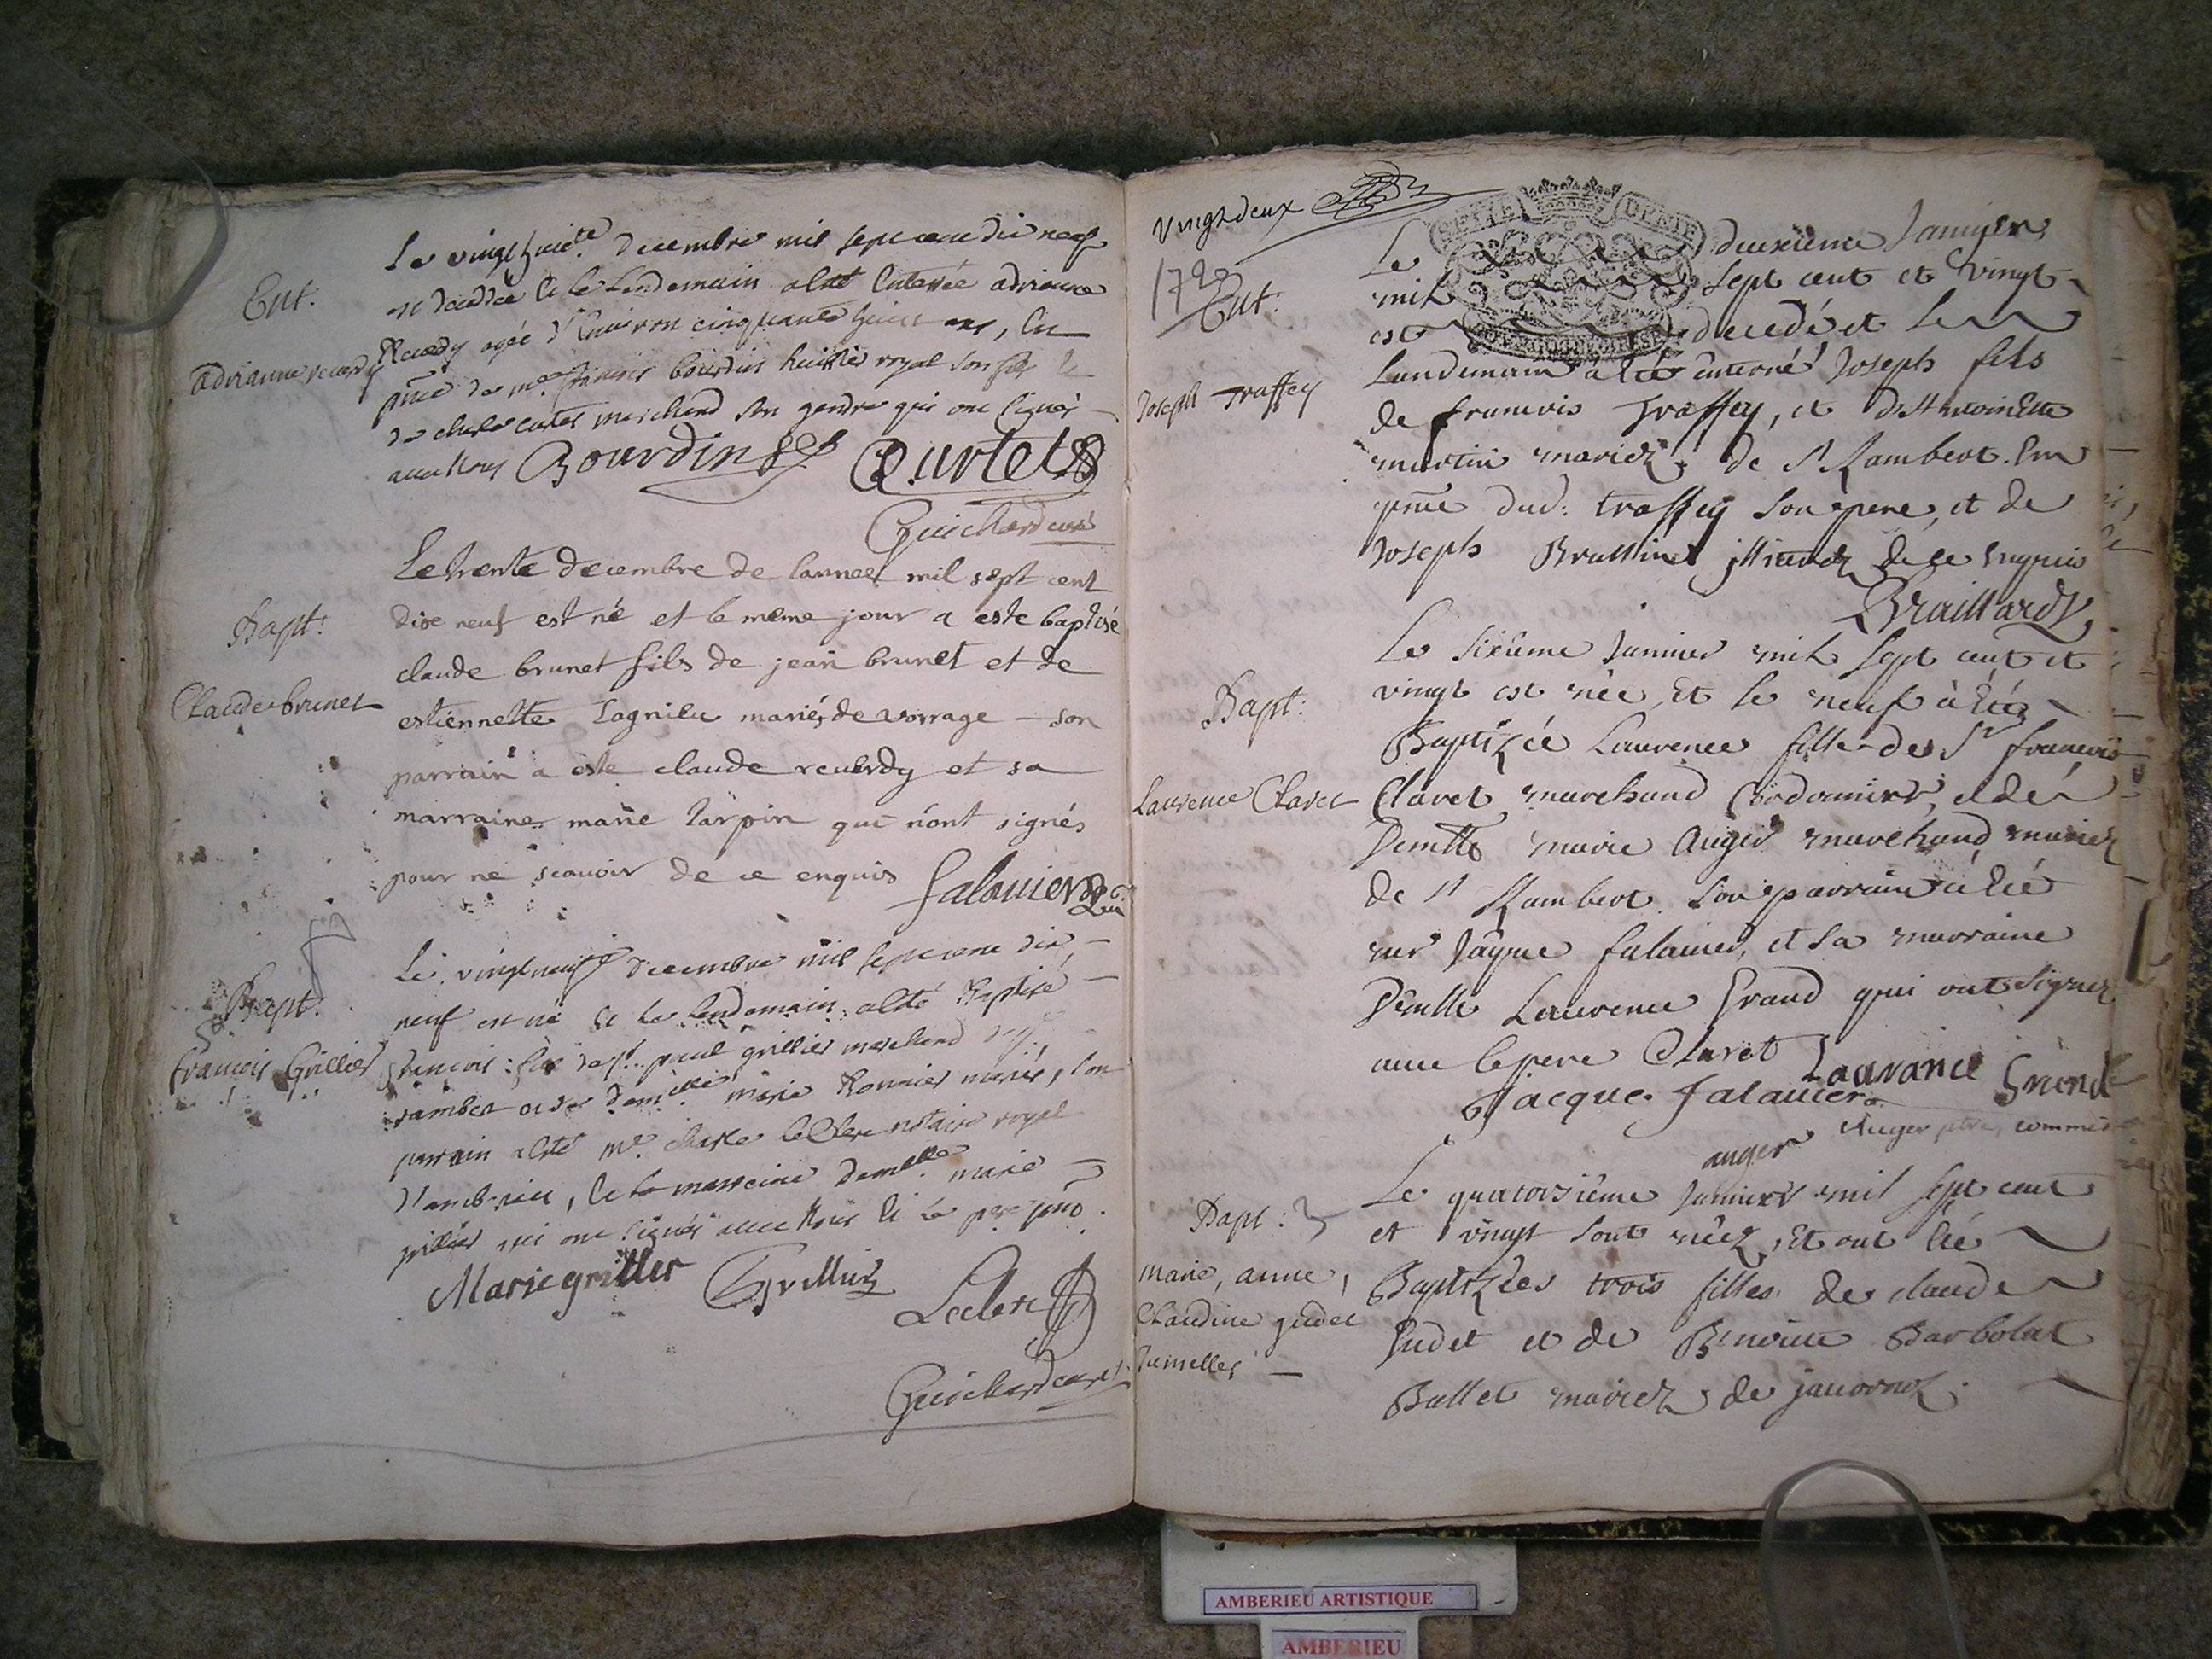 Ent.
adrianne reverdy
Le vingt huit.e decembre mil sept cent dix neuf
est decedée et le Lendemain a esté Enterrée adrianne
Reverdy agée d'Environ cinquante huit ans, En
pnce de me françois bourdin huissier royal son fils et
de charle curtet marchand son gendre qui ont signés
avec Nous Bourdin Curtet
Guichard curé
Bapt:
Claude brunet
Le trente decembre de lannee mil sept cent
dixe neuf est né et le meme jour a este baptisé
claude brunet fils de jean brunet et de
estiennette Lagnieu mariés de vorrage - son
parrain a este claude reverdy et sa
marraine marie tarpin qui n'ont signés
pour ne scavoir de ce enquis falavier
Bapt.
francois Grillier
Le vingt neufe decembre mil sept cent dix
neuf est né Et Le Lendemain a esté Baptisé
francois fils de st. paul grillier marchand
rambert et de demlle marie Bonnier mariés, son
parrain a esté me. charle Leclerc notaire royal
d'ambrieu, et La marreine demelle marie
grillier qui ont signés avec Nous Et Le pere
Marie grillier Grillier
Leclerc
Guichard curé
Vingt deux
1720
GENER
Ent:
Joseph Traffey
Le deuxième Janvier
mil sept cent et vingt
est decedé et Le
Lendemain à été enterré Joseph fils
de francois Traffey, et d'Antoinette
martin mariez de St Rambert. En
pnce dud: traffey son pere, et de
Joseph Brullind illiterez de ce enquis
Braillard
Bapt:
Laurence Claret
Le sixième Janvier mil sept cent et
vingt est née, Et le neuf à été
Baptizée Laurence fille de Sr francois
Claret marchand Cordonnier, et de
Demlle marie Auger marchand mariez
de St Rambert. Son parrain a été
mr Jaque falavier, et sa marraine
Demlle Laurence Grand qui ont signez
avec le pere Claret Laurance Grend
Jacque falavier
Auger ptre, commis
auger
Bapt: 3
marie, anne,
Claudine gudet
Jumelles
Le quatorsième Janvier mil sept cent
et vingt sont néez, Et ont été
Baptizées trois filles de claude
Gudet et de Benoitte Barbolat
Ballet mariez de javornoz.
AMBERIEU ARTISTIQUE
AMBERIEU